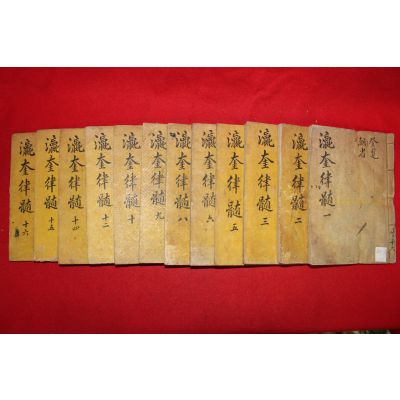 瀛奎律髓 一
瀛奎律髓 二
瀛奎律髓 三
瀛奎律髓 五
瀛奎律髓 六
瀛奎律髓 八
瀛奎律髓 九
瀛奎律髓 十
瀛奎律髓 十二
瀛奎律髓 十四
瀛奎律髓 十五
瀛奎律髓 十六